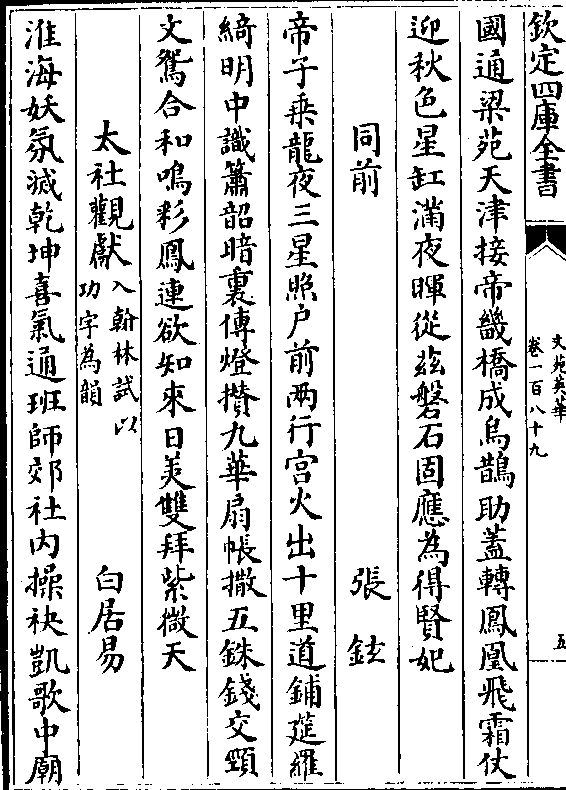 欽定四庫全書
文苑英華
卷一百八十九
五
國通梁苑天津接帝畿橋成烏鵲助蓋轉鳳凰飛霜仗
迎秋色星缸滿夜暉從兹磐石固應為得賢妃
同前
張鉉
帝子乗龍夜三星照户前两行宫火出十里道鋪筵羅
綺明中識簫韶暗裏傳燈攅九華扇帳撒五銖錢交頸
文鴛合和鳴彩鳳連欲知來日美雙拜紫微天
太社觀獻入翰林試以功字為韻
白居易
淮海妖氛滅乾坤喜氣通班師郊社内操袂凱歌中廟